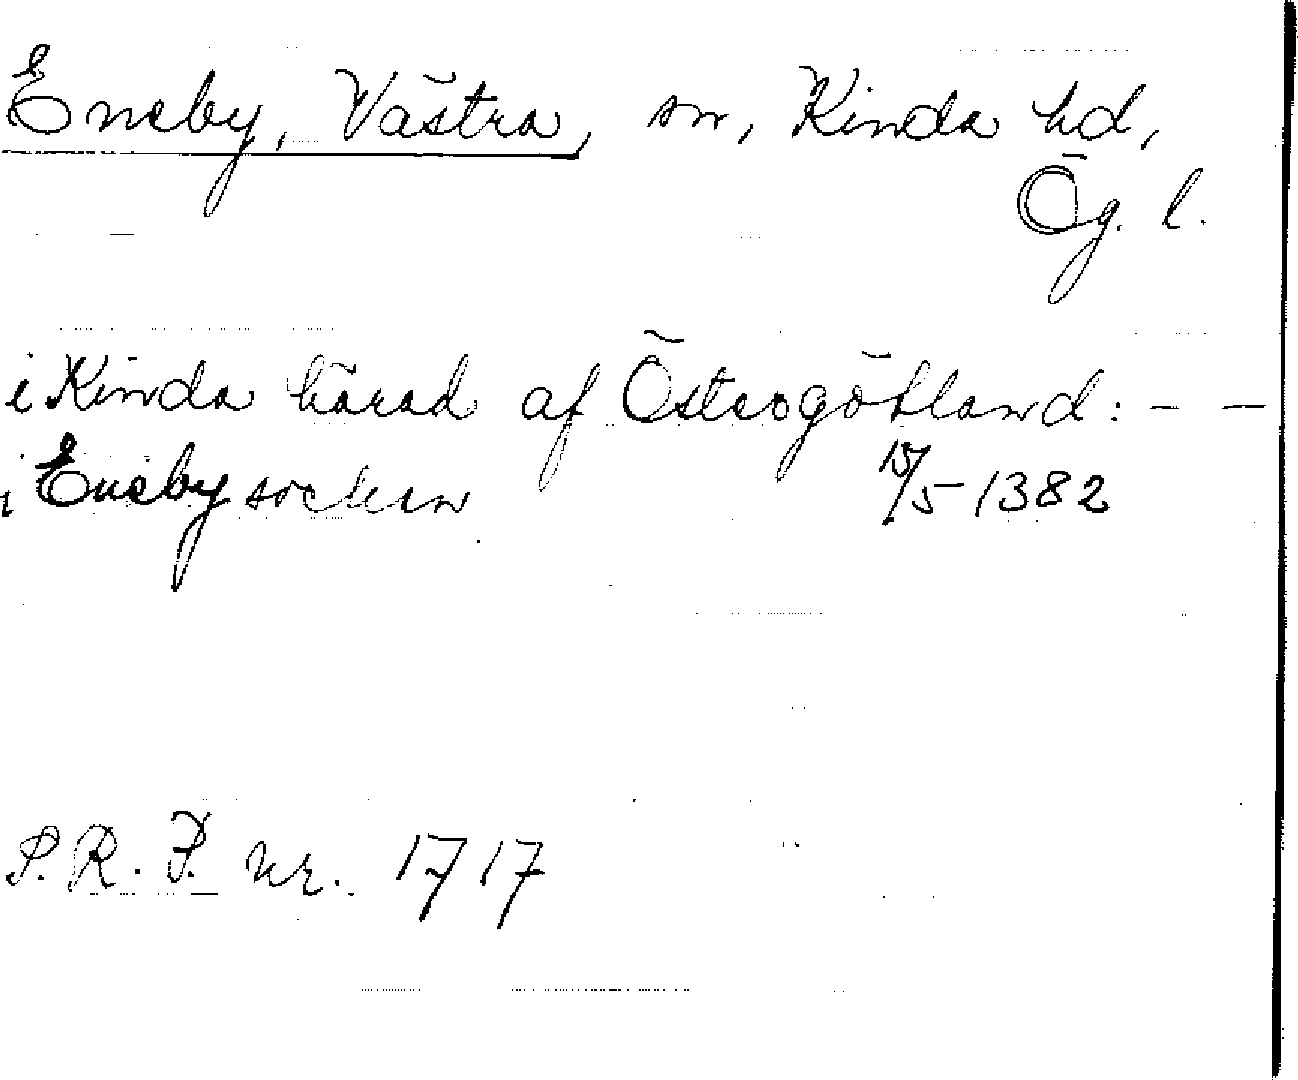 Eneby, Västra, sn, Kinda hd,
Ög. l.
i Kinda härad af Östergötland: - -
i Eneby socken 15/5 1382
S.R.P. nr. 1717